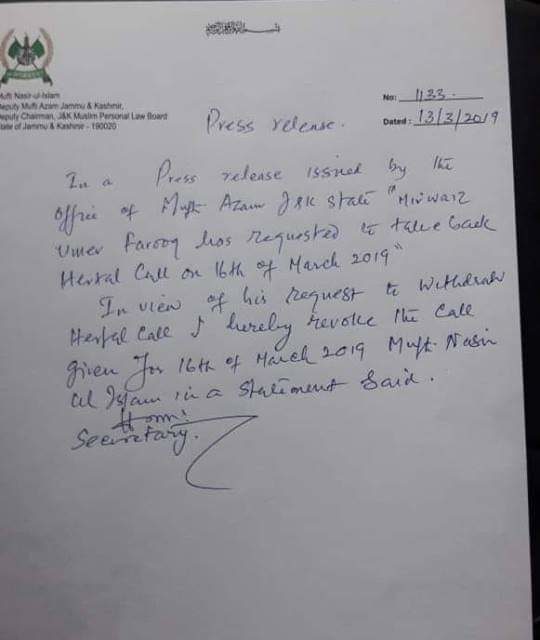 Mufti Nasir-ul-Islam
Deputy Mufti Azam Jammu & Kashmir,
Deputy Chairman, J&K Muslim Personal Law Board
State of Jammu & Kashmir - 190020
No: 1133.
Dated: 13/3/2019
Press release.
In a Press release issued by the
office of Mufti Azam J&K state "Mirwaiz
Umer Farooq has requested to take back
Hertal Call on 16th of March 2019"
In view of his request to withdraw
Hertal Call I hereby revoke the Call
given for 16th of March 2019 Mufti Nasir
ul Islam in a statement Said.
Secretary.